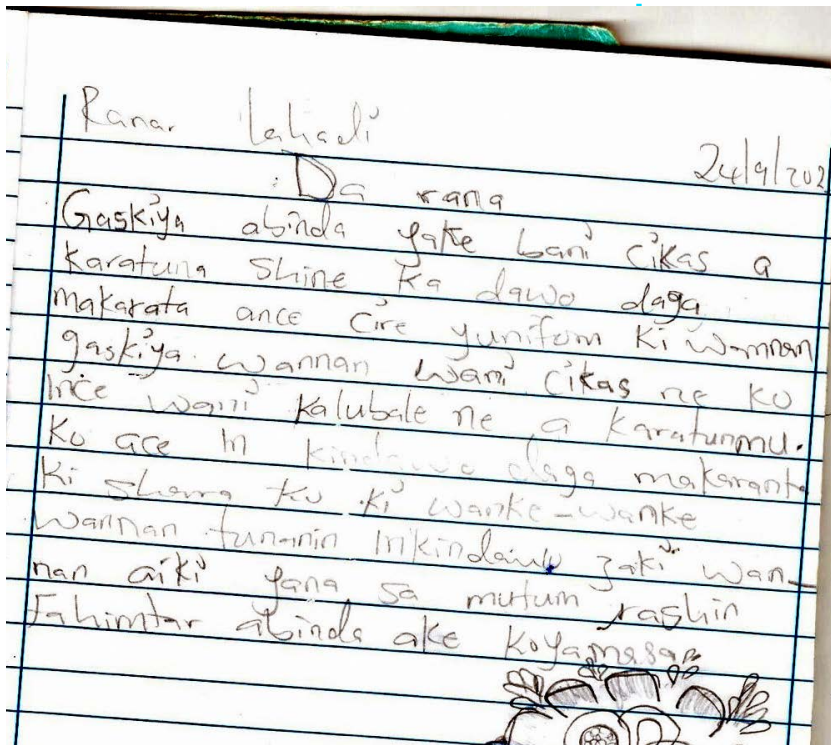 Ranar lahadi
24/9/202
Da rana
Gaskiya abinda yake bani cikas a
karatuna shine ka dawo daga
makarata ance cire yunifom ki wannan
gaskiya wannan wani cikas ne ko
ince wani kalubale ne a karatunmu.
Ko ace in kindawo daga makaranta
ki sharra ko ki wanke-wanke
wannan tunanin inkindawo zaki wan-
nan aiki yana sa mutum rashin
fahimtar abinda ake koyamasa